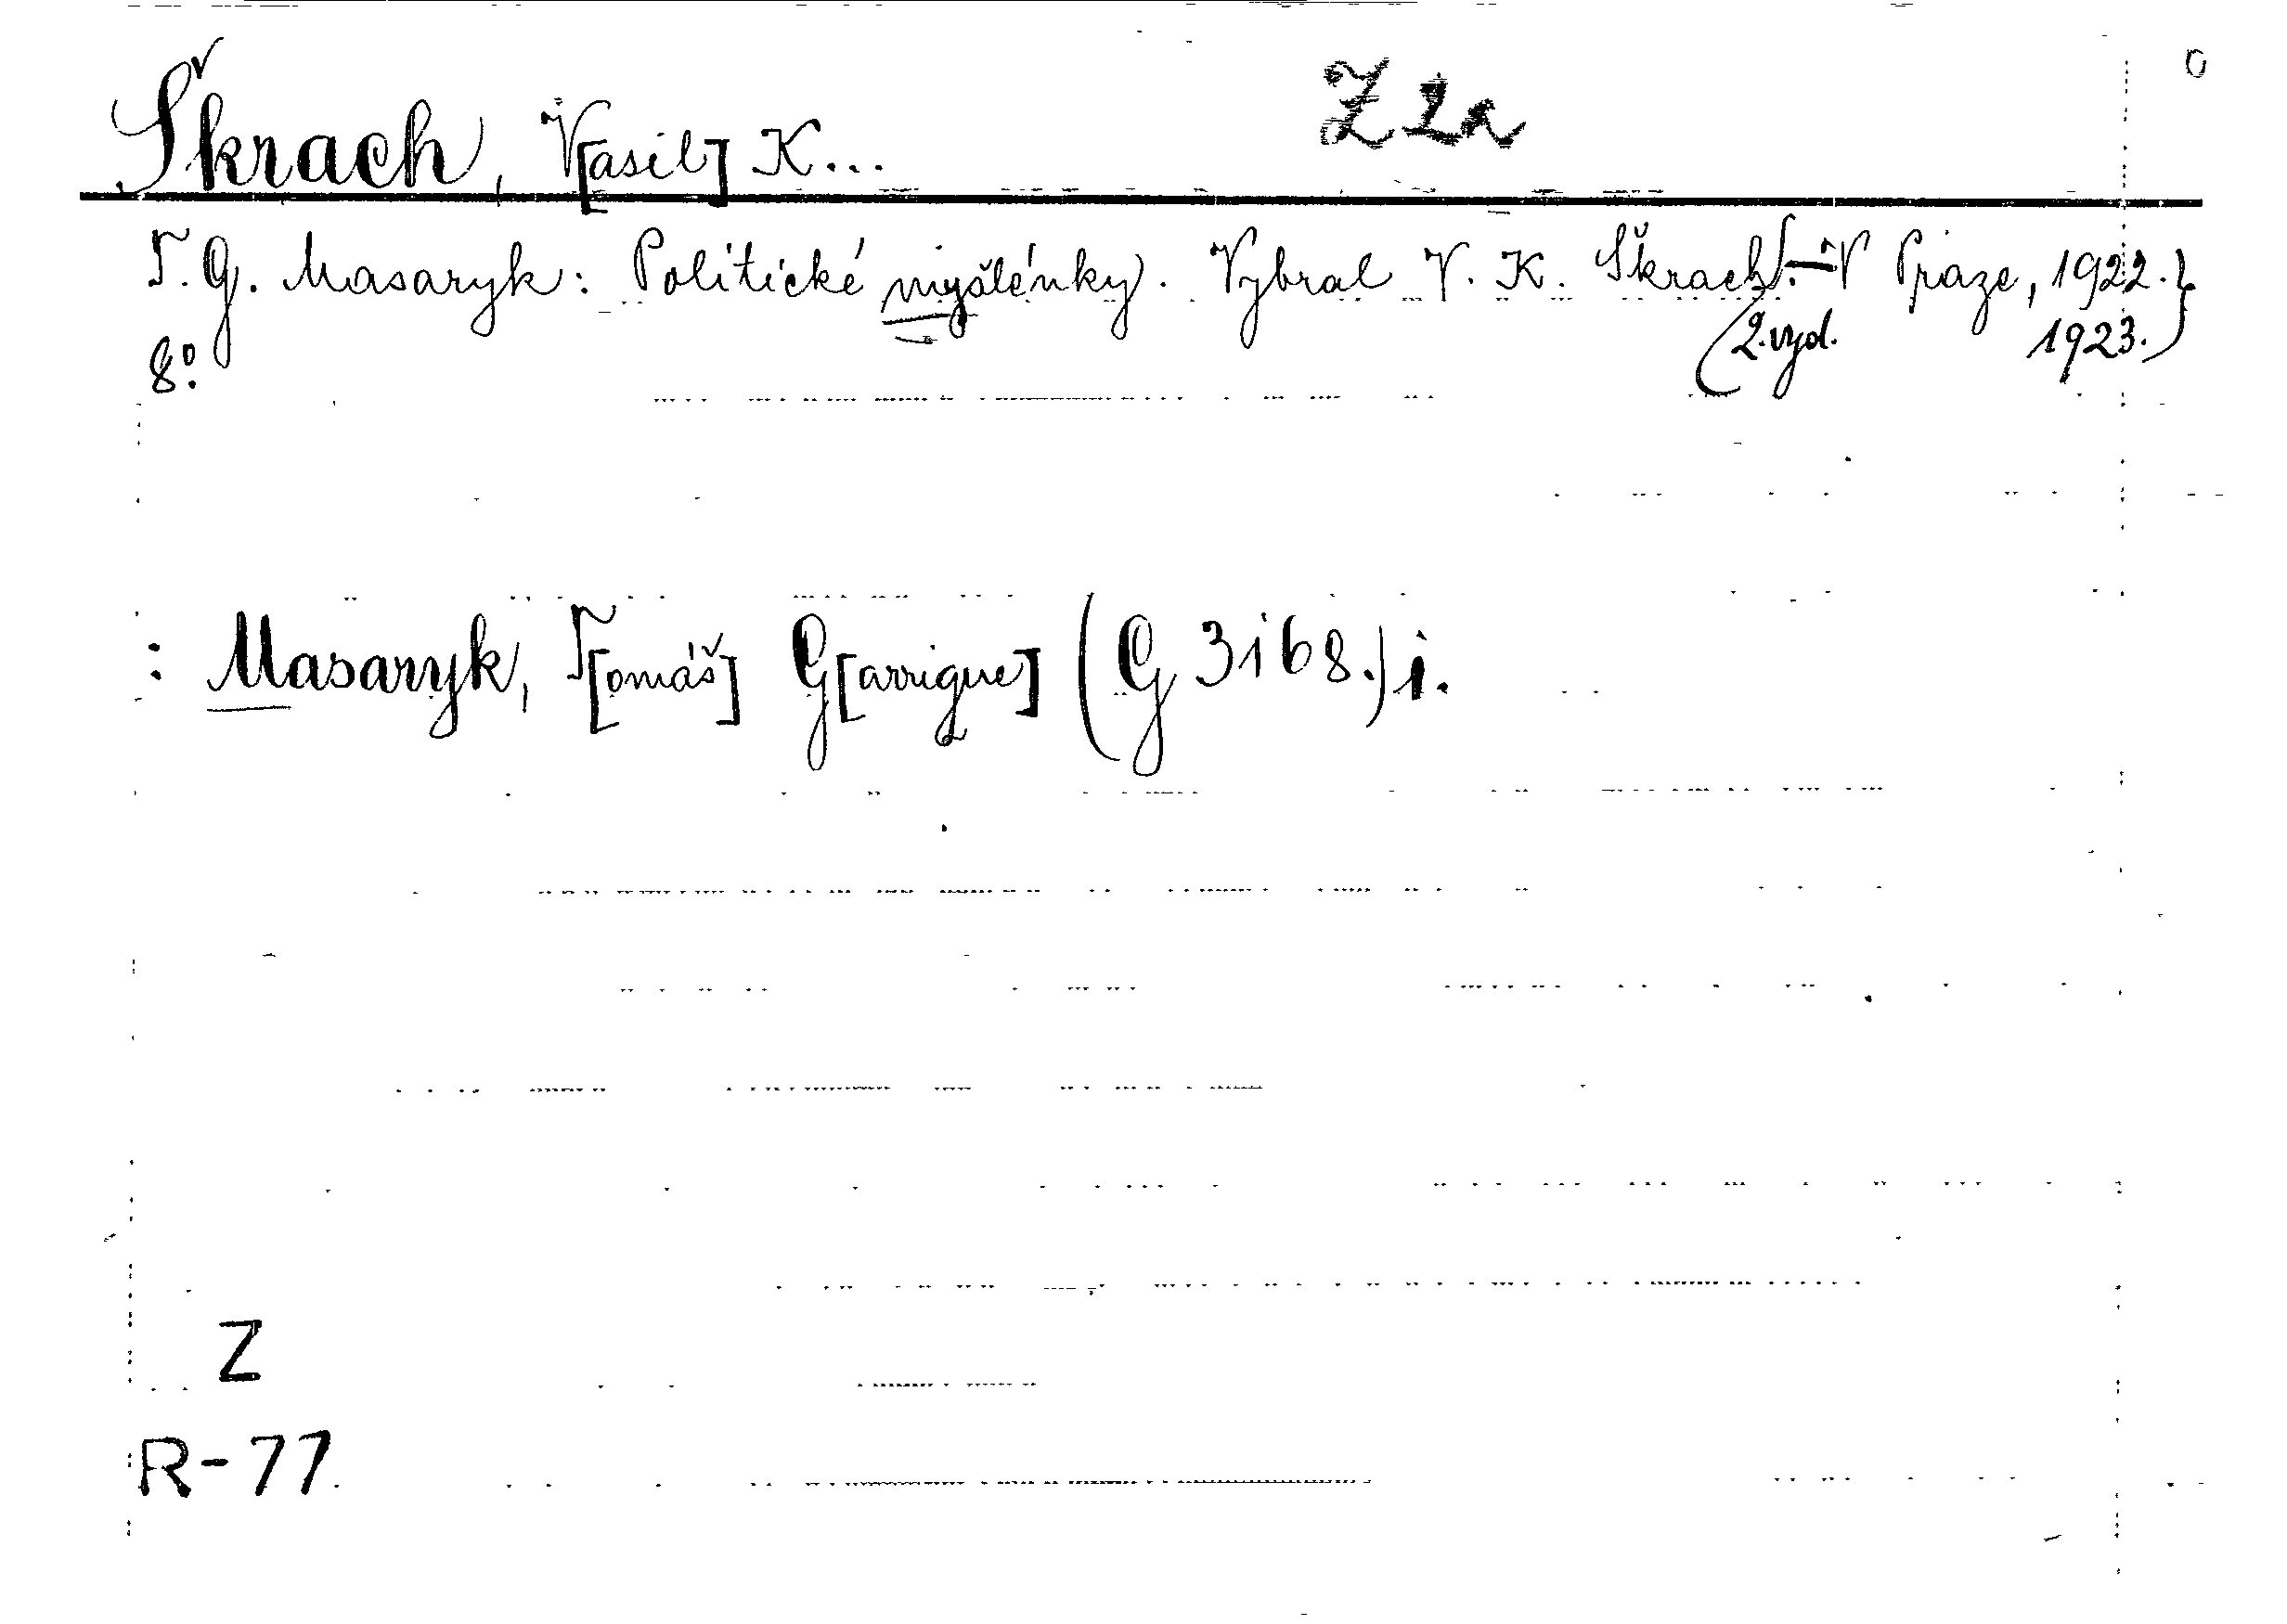 Škrach, V[asil] K... Z 2a
T. G. Masaryk: Politické myšlénky. Vybral V. K. Škrach. — V Praze, 1922.}
8⁰. (2. vyd. 1923.)
: Masaryk, T[omáš] G[arrigue] (G 3168.) i.
Z
R-77